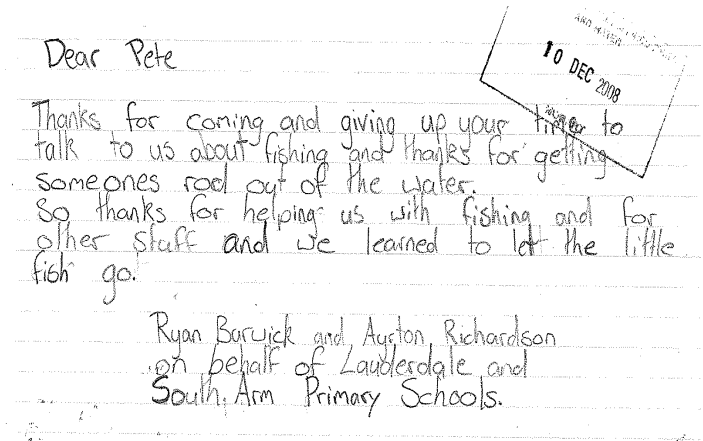 Dear Pete
10 DEC 2008
Thanks for coming and giving up your time to
talk to us about fishing and thanks for getting
someones rod out of the water.
So thanks for helping us with fishing and for
other stuff and we learned to let the little
fish go.
Ryan Barwick and Ayrton Richardson
on behalf of Lauderdale and
South Arm Primary Schools.